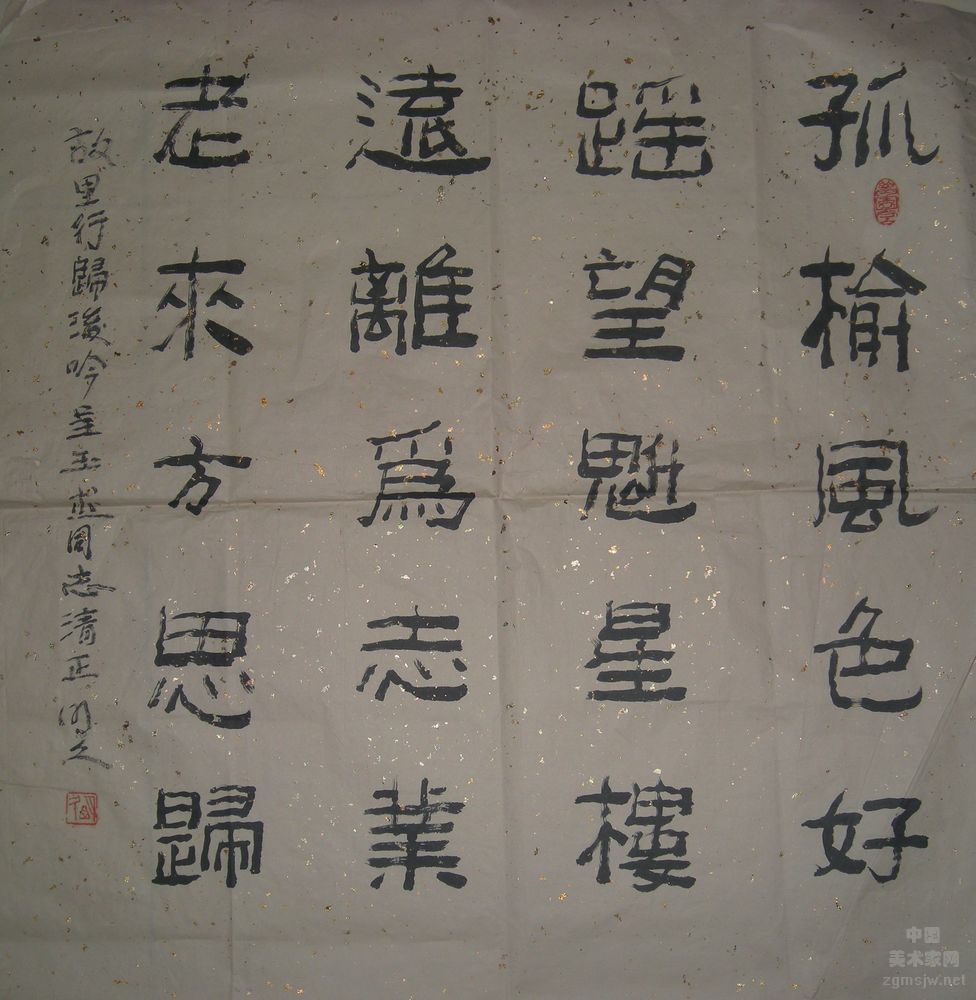 孤榆風色好
蹈望魁星樓
遠離為志業
老來方思歸
故里行歸後吟呈玉书同志清正 明久
中国
美术家网
zgmsjw.net